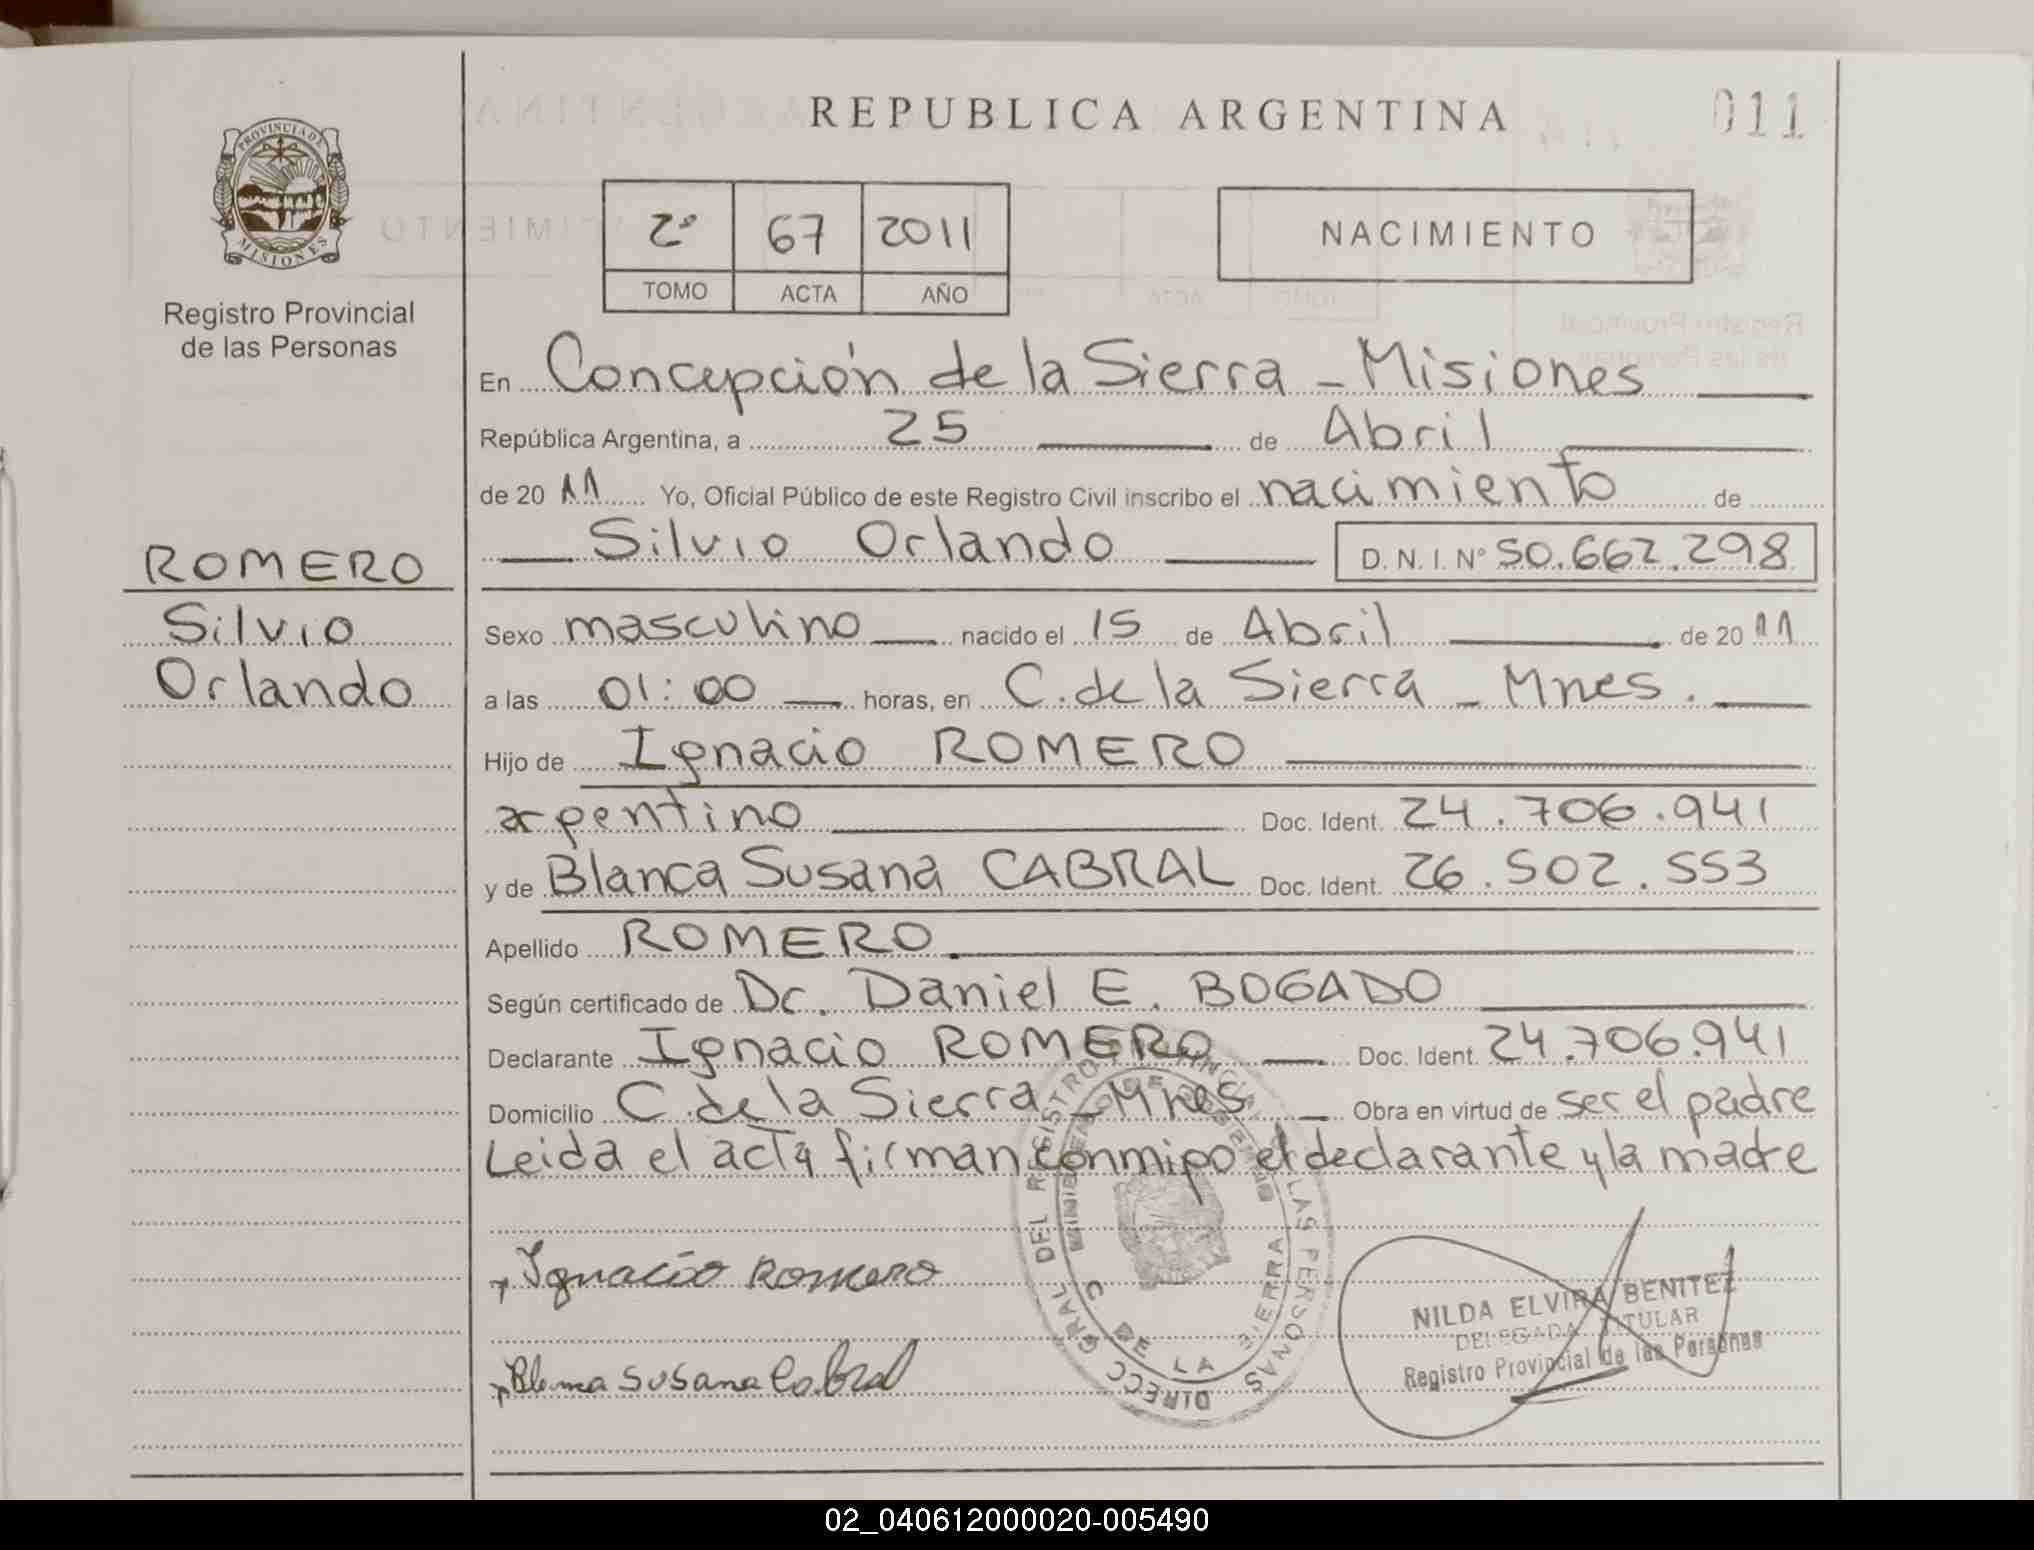 REPUBLICA ARGENTINA
011
PROVINCIA DE
MISIONES
Registro Provincial
de las Personas
2º 67 2011
TOMO ACTA AÑO
NACIMIENTO
En Concepción de la Sierra - Misiones
República Argentina, a 25 de Abril
de 2011 Yo, Oficial Público de este Registro Civil inscribo el nacimiento de
Silvio Orlando D. N. I. Nº 50.662.298
ROMERO
Silvio
Orlando
Sexo masculino nacido el 15 de Abril de 2011
a las 01:00 horas, en C. de la Sierra - Mnes.
Hijo de Ignacio ROMERO
argentino Doc. Ident. 24.706.941
y de Blanca Susana CABRAL Doc. Ident. 26.502.553
Apellido ROMERO
Según certificado de Dr. Daniel E. BOGADO
Declarante Ignacio ROMERO Doc. Ident. 24.706.941
Domicilio C. de la Sierra - Mnes Obra en virtud de ser el padre
Leida el acta firman conmigo el declarante y la madre
Ignacio Romero
Blanca Susana Cabral
DIRECC GRAL DEL REGISTRO PROVINCIAL DE LAS PERSONAS
C DE LA SIERRA
NILDA ELVIRA BENITEZ
DELEGADA TITULAR
Registro Provincial de las Personas
02_040612000020-005490